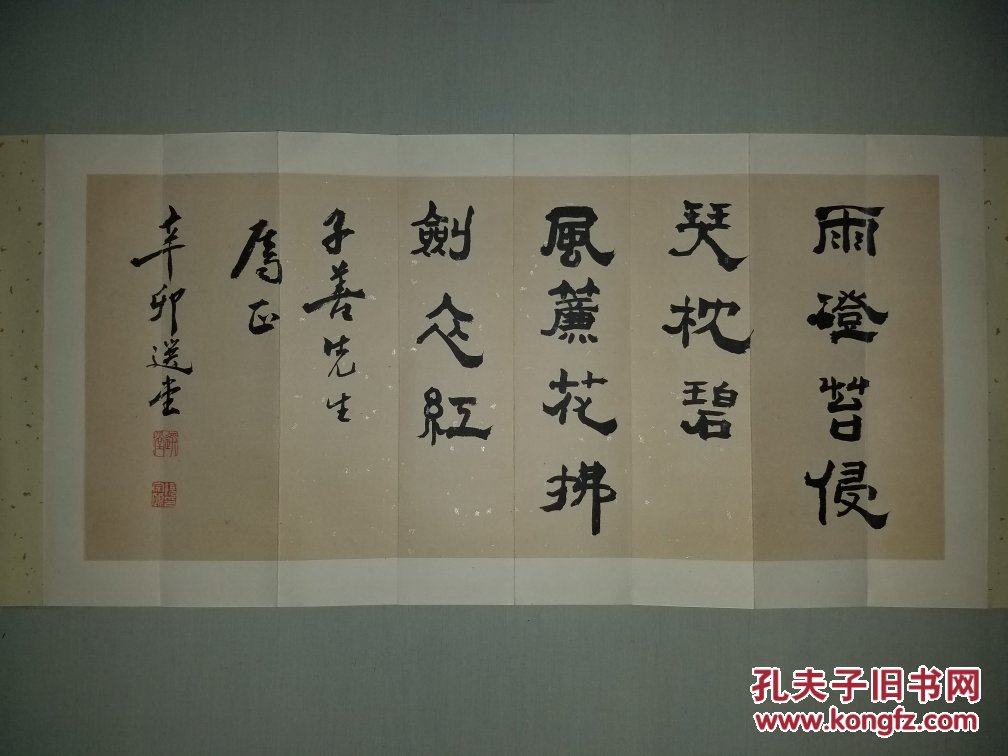 雨磴苔侵
琹枕碧
風簾花拂
劍衣紅
子善先生
屬正
辛卯選堂
孔夫子旧书网
www.kongfz.com